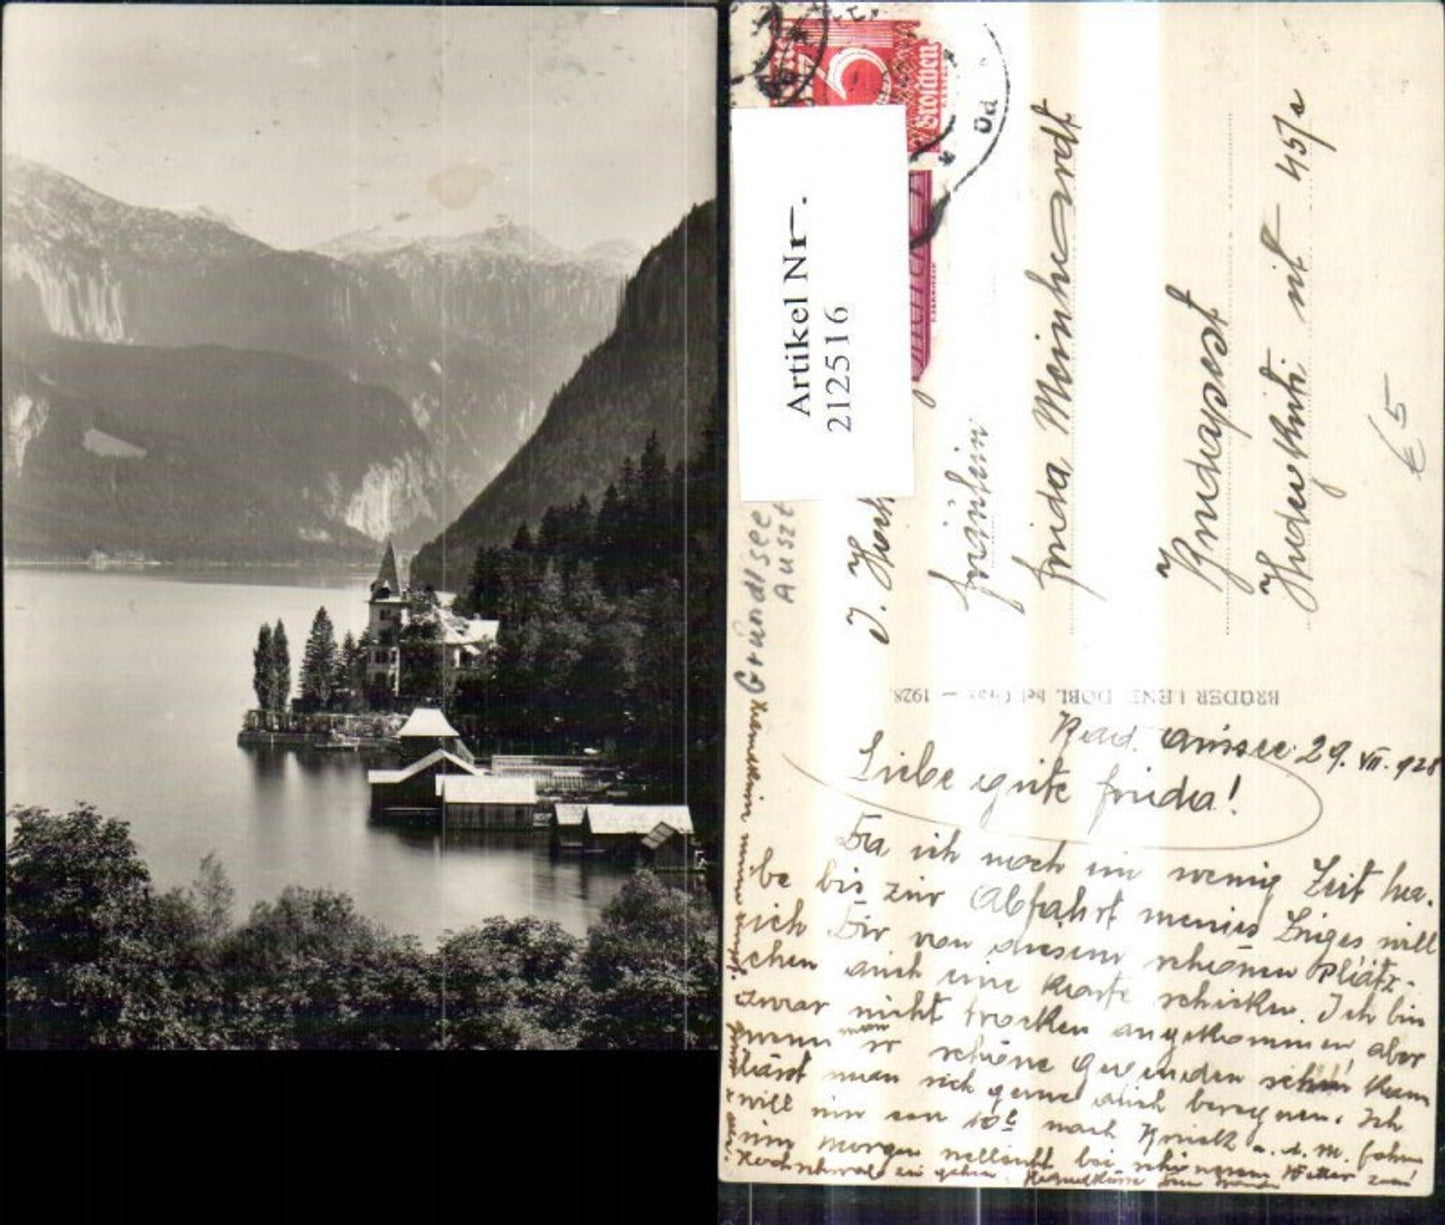 Groschen
Artikel Nr.
212516
Grundlsee
Auszt
Fräulein
Frida Meinhardt
Budapest
45/a
€ 5
BRÜDER LENZ, DOBL bei Graz — 1928.
Bad Aussee 29. VII. 928
Liebe gute Frida!
Da ich noch ein wenig Zeit ha-
be bis zur Abfahrt meines Zuges will
ich Dir von diesem schönen Plätz-
chen auch eine Karte schicken. Ich bin
zwar nicht trocken angekommen, aber
wenn man so schöne Gegenden sehen kann
lässt man sich gerne auch beregnen. Ich
will nun um 10h nach Bruck a. d. M. fahren
um morgen vielleicht bei schönerem Wetter zum
Hochschwab zu gehen.